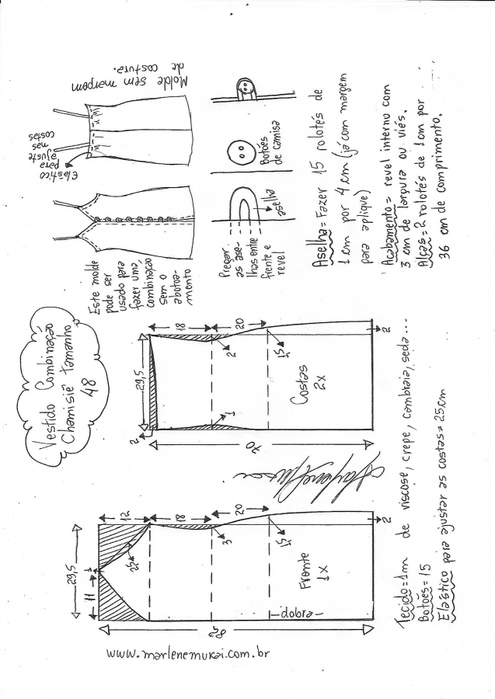 Vestido Combinação
Chamisiê tamanho
48
Este molde
pode ser
usado para
fazer uma
combinação
sem o
abotoa-
mento
Elástico
para
ajuste
nas
costas
Molde sem margem
de costura.
Pregar
as ase-
lhas entre
frente e
revel
aselha
Botões
de camisa
Aselha= Fazer 15 rolotês de
1cm por 4cm (já com margem
para aplique)
Acabamento= revel interno com
3 cm de largura ou viés.
Alças= 2 rolotês de 1cm por
36 cm de comprimento.
29,5
2
18
20
2
1
1,5
Costas
2x
70
2
29,5
11
1
12
18
20
2,5
3
1,5
Frente
1x
dobra
82
2
www.marlenemukai.com.br
Tecido=1m de viscose, crepe, cambraia, seda...
Botões= 15
Elástico para ajustar as costas= 25cm